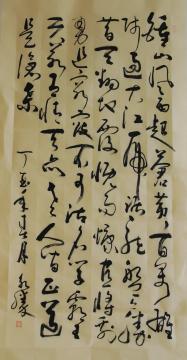 鍾山风雨起蒼黄百万雄
师过大江虎踞龙盘今胜
昔天翻地覆慨而慷宜将剩
勇追穷寇不可沽名学霸王
天若有情天亦老人间正道
是滄桑
丁亥年